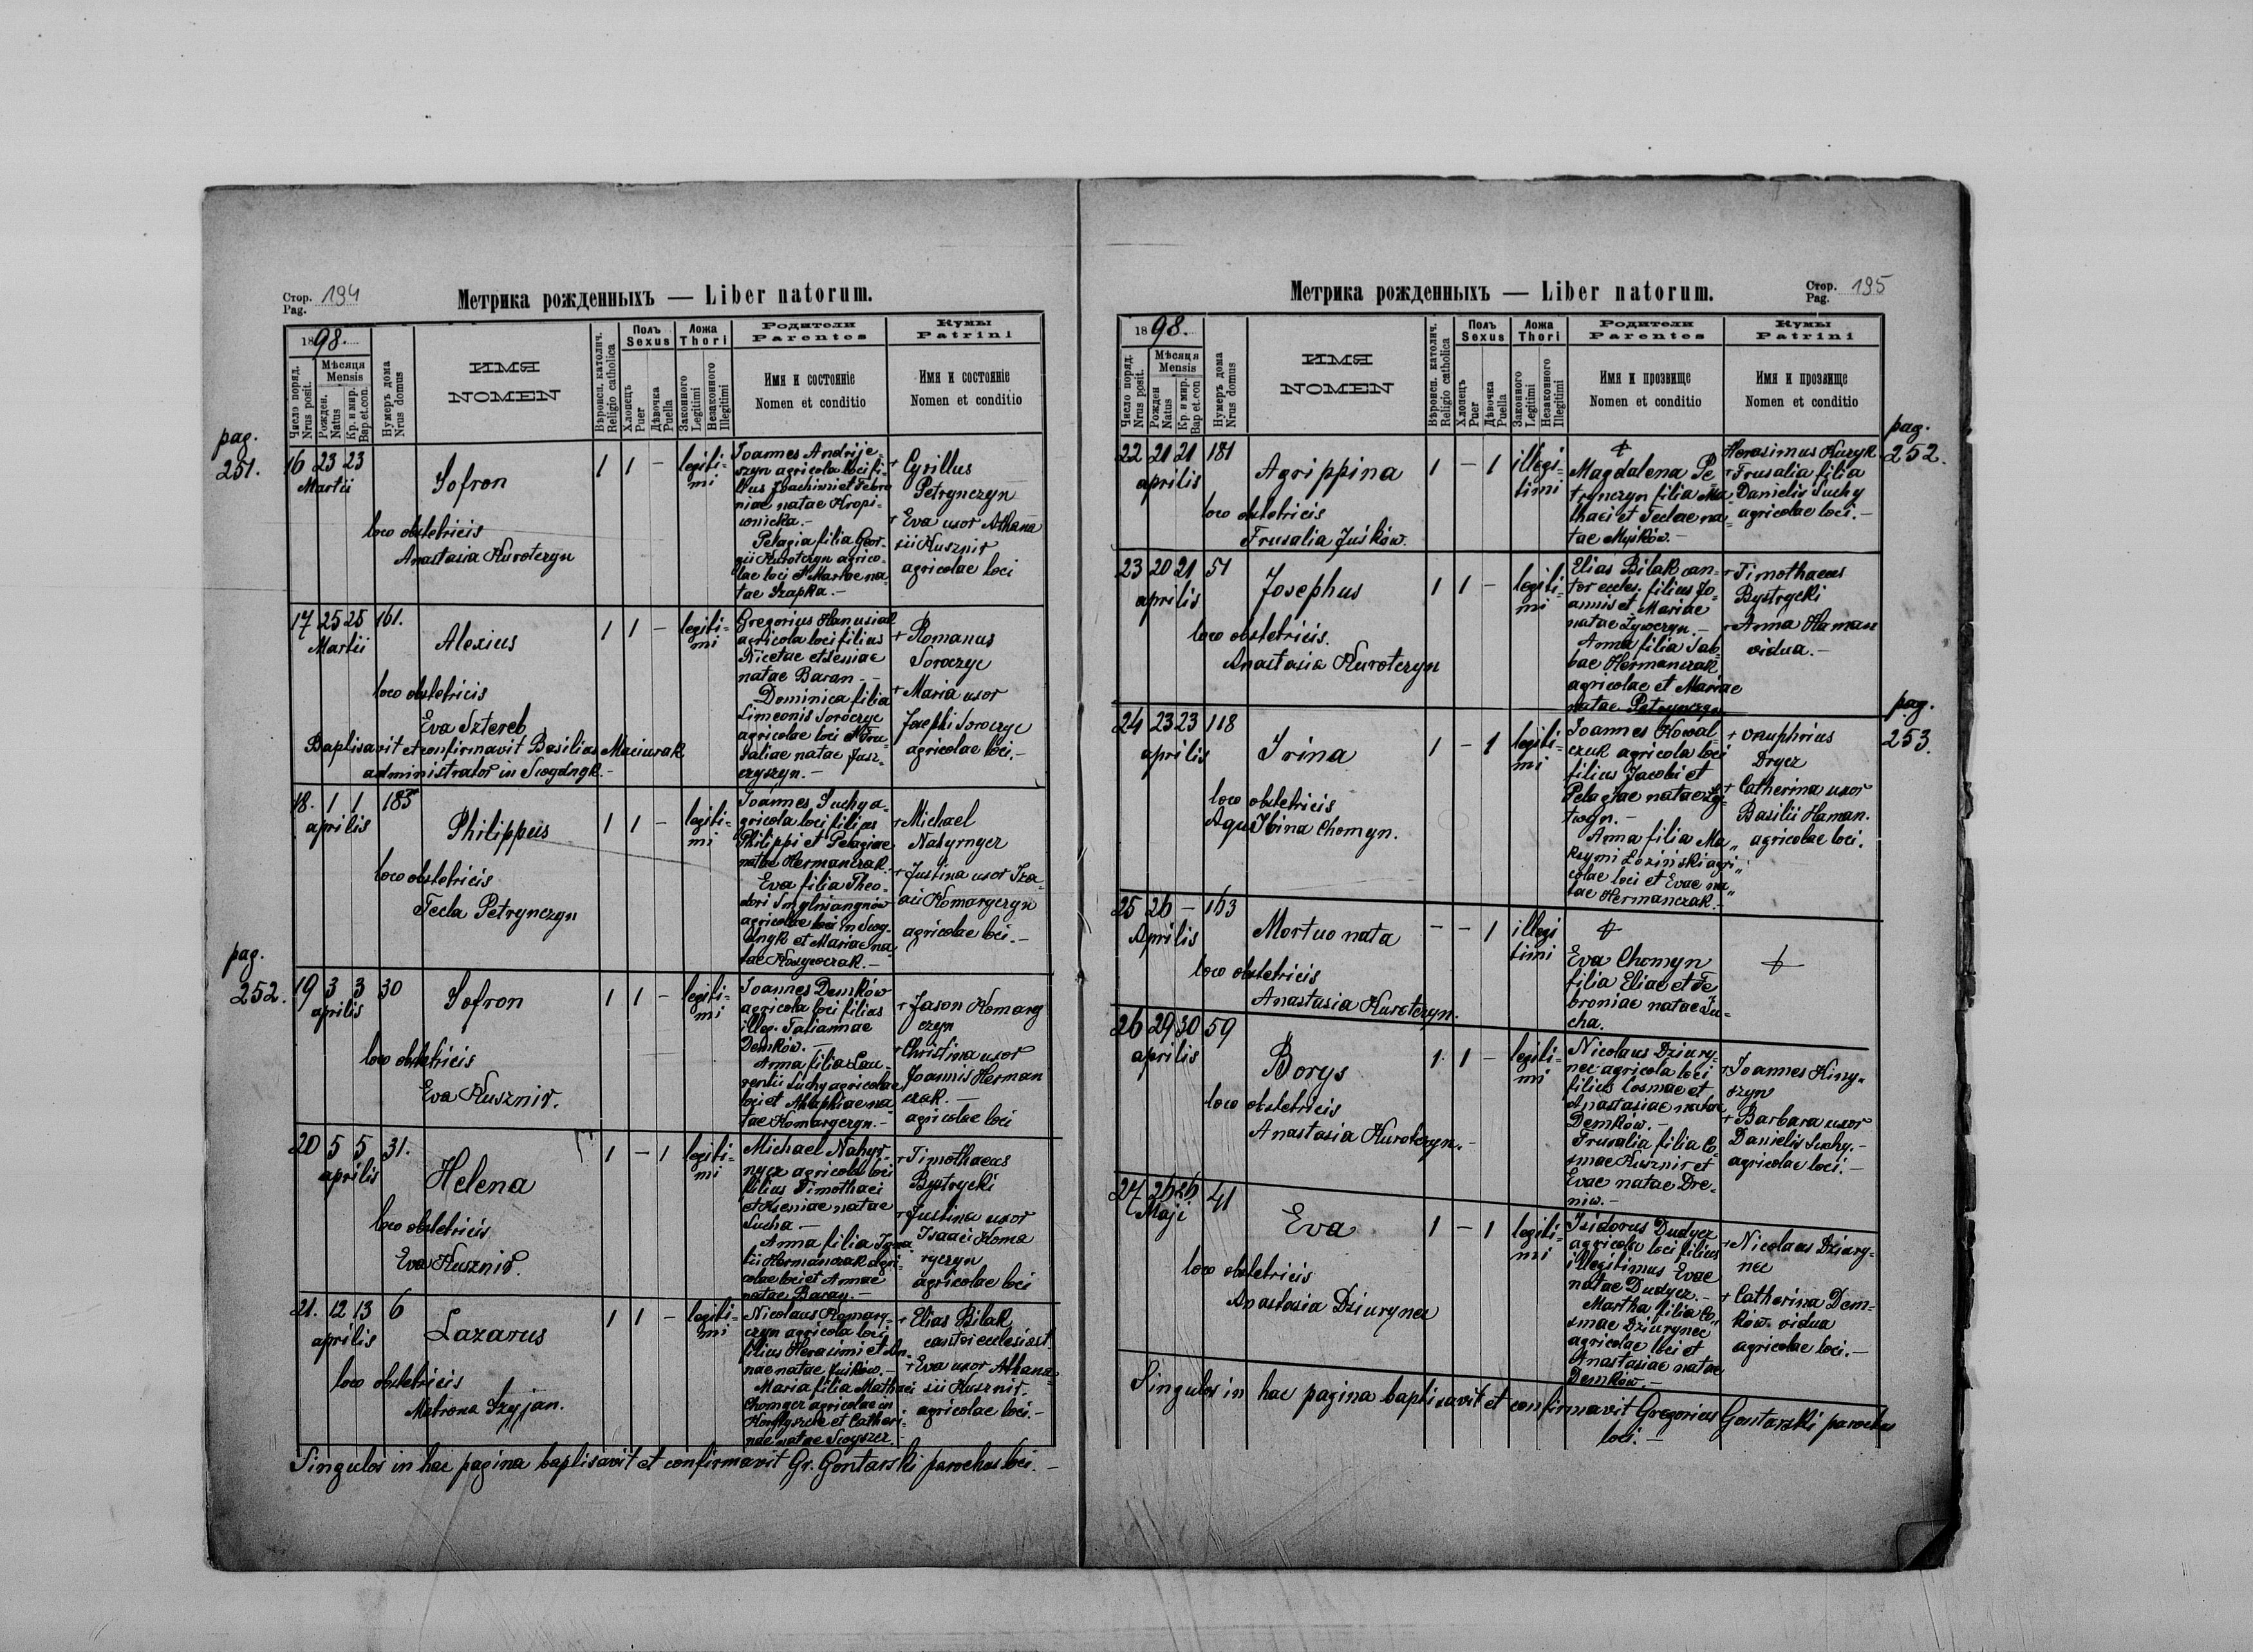 Стор. 194
Pag.
Метрика рожденныхъ — Liber natorum.
1898.
Число поряд.
Nrus posit.
Мѣсяця
Mensis
Рожден.
Natus
Кр. и мир.
Bap et.con.
Нумеръ дома
Nrus domus
ИМЯ
NOMEN
Вѣроисп. католич.
Religio catholica
Полъ
Sexus
Хлопецъ
Puer
Дѣвочка
Puella
Ложа
Thori
Законного
Legitimi
Незаконного
Illegitimi
Родители
Parentes
Имя и состояніе
Nomen et conditio
Кумы
Patrini
Имя и состояніе
Nomen et conditio
pag.
251.
16 23 23
Martii
Sofron
loco obstetricis
Anastasia Kurotczyn
1 1 –
legiti-
mi
Joannes Andrije-
szyn agricola loci fi-
lius Joachimi et Febro
niae natae Kropi-
wnicka.–
Pelagia filia Geor-
gii Kurotczyn agrico-
lae loci et Martae na-
tae Szapka.–
+ Cyrillus
Petrynczyn
+ Eva uxor Athana
sii Kusznir
agricolae loci
17 25 25 161.
Martii
Alexius
loco obstetricis
Eva Sztereb
Baptisavit et confirmavit Basilius Maciurak
administrator in
1 1 –
legiti-
mi
Gregorius Hanusiak
agricola loci filius
Nicetae et Xeniae
natae Baran.–
Dominica filia
Simeonis Soroczyc
agricolae loci et Fru
saliae natae Jusz-
czyszyn.–
+ Romanus
Soroczyc
+ Maria uxor
Josephi Soroczyc
agricolae loci.–
18. 1 1 185
aprilis
Philippus
loco obstetricis
Tecla Petrynczyn
1 1 –
legiti-
mi
Joannes Suchy a-
gricola loci filius
Philippi et Pelagiae
natae Hermanczak.
Eva filia Theo-
dori
agricolae loci in
et Mariae na-
tae
+ Michael
Nahyrnyez
+ Justina uxor Isa-
aci Komaryczyn
agricolae loci.–
pag.
252.
19 3 3 30
aprilis
Sofron
loco obstetricis
Eva Kusznir.
1 1 –
legiti-
mi
Joannes Demków
agricola loci filius
illeg. Tatiannae
Demków.–
Anna filia Lau-
rentii Suchy agricolae
loci et Ahaphiae na-
tae Komaryczyn.–
+ Jason Komary
czyn
+ Christina uxor
Joannis Herman
czak.–
agricolae loci
20 5 5 31.
aprilis
Helena
loco obstetricis
Eva Kusznir.
1 – 1
legiti-
mi
Michael Nahyr-
nyez agricola loci
filius Timothaei
et Xeniae natae
Sucha.–
Anna filia Igna
tii Hermanczak agri-
colae loci et Annae
natae Baran.–
+ Timothaeus
Bystrycki
+ Justina uxor
Isaaci Koma
ryczyn
agricolae loci
21. 12 13 6
aprilis
Lazarus
loco obstetricis
Matrona Szyjan.
1 1 –
legiti-
mi
Nicolaus Komary-
czyn agricola loci
filius Herasimi et An-
nae natae Juśków.–
Maria filia Mathaei
Chomycz agricolae in
et Cathari-
nae natae
+ Elias Bilak
cantor ecclesiast.
+ Eva uxor Athana-
sii Kusznir.
agricolae loci.–
Singulos in hac pagina baptisavit et confirmavit Gr. Gontarski parochus loci.–
Метрика рожденныхъ — Liber natorum.
Стор. 195
Pag.
1898.
Число поряд.
Nrus posit.
Мѣсяця
Mensis
Рожден
Natus
Кр. и мир.
Bap et.con
Нумеръ дома
Nrus domus
ИМЯ
NOMEN
Вѣроисп. католич.
Religio catholica
Полъ
Sexus
Хлопецъ
Puer
Дѣвочка
Puella
Ложа
Thori
Законного
Legitimi
Незаконного
Illegitimi
Родители
Parentes
Имя и прозвище
Nomen et conditio
Кумы
Patrini
Имя и прозвище
Nomen et conditio
pag.
252.
22 21 21 181
aprilis
Agrippina
loco obstetricis
Frusalia Juśków.
1 – 1
illegi-
timi
Magdalena Pe
trynczyn filia Ma-
thaei et Teclae na-
tae Myśków.–
Herasimus Kuzyk
+ Frusalia filia
Danielis Suchy
agricolae loci.–
23 20 21 51
aprilis
Josephus
loco obstetricis.
Anastasia Kurotczyn
1 1 –
legiti-
mi
Elias Bilak can-
tor eccles. filius Jo-
annis et Mariae
natae Zywczyn.–
Anna filia Sab-
bae Hermanczak
agricolae et Mariae
natae Petrynczyn
+ Timothaeus
Bystrycki
+ Anna Haman
vidua.–
pag.
253.
24 23 23 118
aprilis
Irina
loco obstetricis
Chomyn.
1 – 1
legiti-
mi
Joannes Kowal-
czuk agricola loci
filius Jacobi et
Pelagiae natae
Anna filia Ma-
ksymi Loziński agri-
colae loci et Evae na-
tae Hermanczak.–
+ Onuphrius
Drycz
+ Catherina uxor
Basilii Haman.
agricolae loci.
25 26 – 163
Aprilis
Mortuo nata
loco obstetricis
Anastasia Kurotczyn.
– – 1
illegi
timi
Eva Chomyn
filia Eliae et Fe
broniae natae Su-
cha.
26 29 30 59
aprilis
Borys
loco obstetricis
Anastasia Kurotczyn.–
1. 1 –
legiti-
mi
Nicolaus Dziury-
nec agricola loci
filius Cosmae et
Anastasiae natae
Demków.–
Frusalia filia Co-
smae Kusznir et
Evae natae Dre-
niw.–
+ Joannes Hiny-
szyn
+ Barbara uxor
Danielis Suchy.–
agricolae loci.–
27 26 26 41
Maji
Eva
loco obstetricis
Anastasia Dziurynec
1 – 1
legiti-
mi
Isidorus Dudycz
agricola loci filius
illegitimus Evae
natae Dudycz.–
Martha filia Co-
smae Dziurynec
agricolae loci et
Anastasiae natae
Demków.–
+ Nicolaus Dziury-
nec
+ Catharina Dem-
ków vidua
agricolae loci.–
Singulos in hac pagina baptisavit et confirmavit Gregorius Gontarski parochus
loci.–